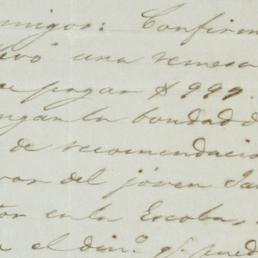 migos: Confirm
levó una remesa
e pagar $999.
ngan la bondad d
de recomendacio
vor del jóven Ja
tor en la Escoba,
a el din.º q.e pued